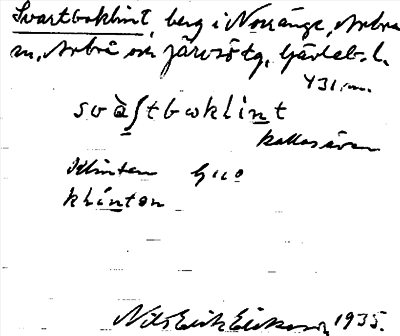 Svartboklint, berg i Norränge, Arbrå
sn, Arbrå och Järvsö tg, Gävleb. l.
431 m.
svàʃtbωklint
kallas även
Klinten
klínton
Nils Erik Eriksson 1935.